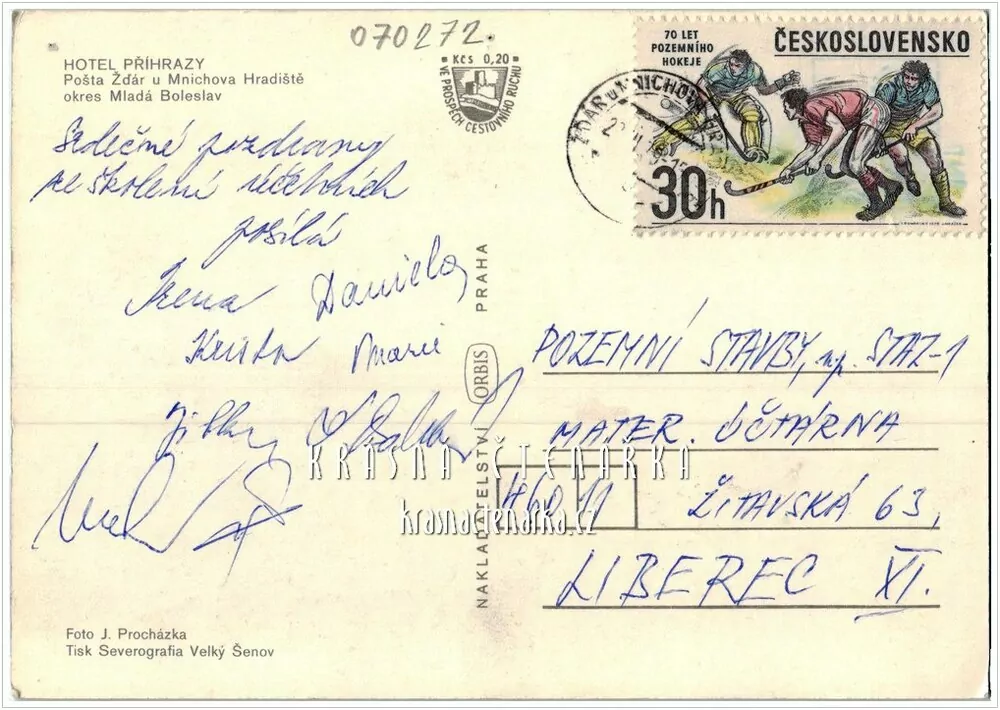 070272.
HOTEL PŘÍHRAZY
Pošta Žďár u Mnichova Hradiště
okres Mladá Boleslav
Kčs 0,20
VE PROSPĚCH CESTOVNÍHO RUCHU
70 LET
POZEMNÍHO
HOKEJE
ČESKOSLOVENSKO
30h
ŽĎÁR U MNICHOVA
Srdečné pozdravy
ze školení účetních
posílá
Irena Daniela
Marie
NAKLADATELSTVÍ ORBIS PRAHA
POZEMNÍ STAVBY, n.p. STAZ-1
MATER. ÚČTÁRNA
460 11 ŽITAVSKÁ 63,
LIBEREC XI.
KRÁSNÁ ČTENÁŘKA
krasnactenarka.cz
Foto J. Procházka
Tisk Severografia Velký Šenov